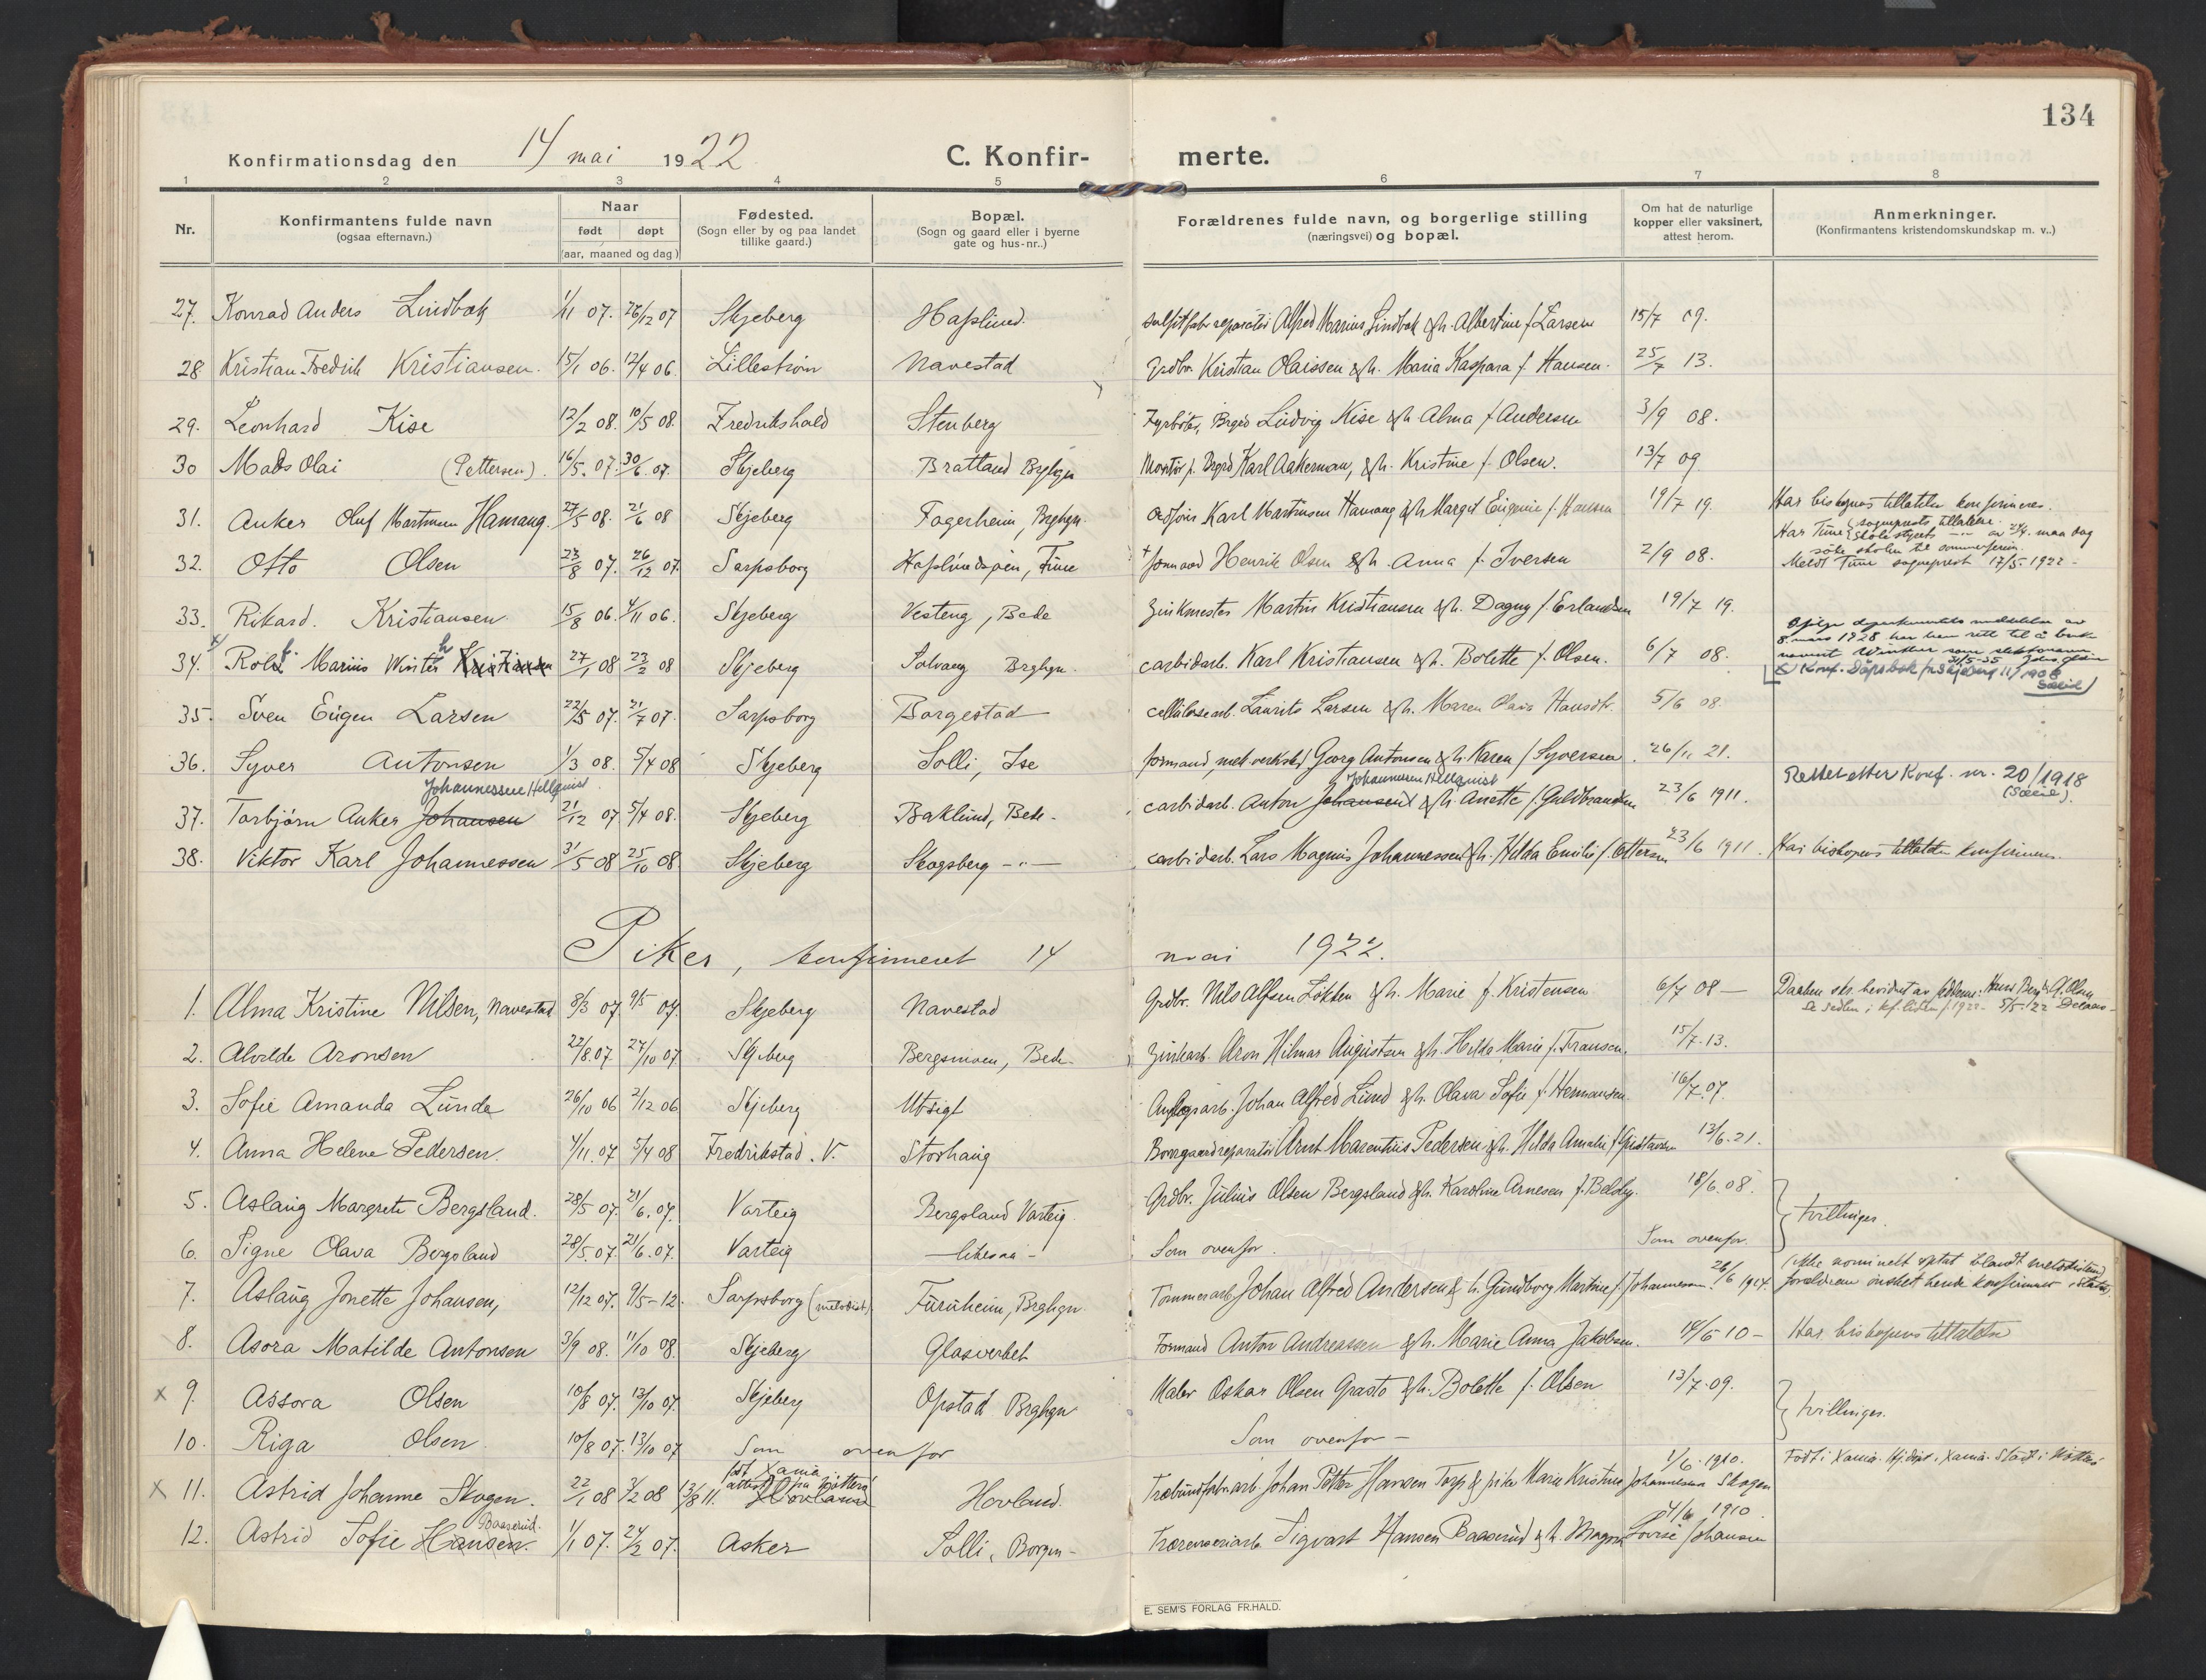 134
Konfirmationsdag den 14 mai 1922 C. Konfir- merte.
1 2 3 4 5 6 7 8
Nr. Konfirmantens fulde navn (ogsaa efternavn.) Naar født døpt (aar, maaned og dag) Fødested. (Sogn eller by og paa landet tillike gaard.) Bopæl. (Sogn og gaard eller i byerne gate og hus-nr..) Forældrenes fulde navn, og borgerlige stilling (næringsvei) og bopæl. Om hat de naturlige kopper eller vaksinert, attest herom. Anmerkninger. (Konfirmantens kristendomskundskap m. v..)
27. Konrad Anders Lindbæk 1/11 07. 26/12 07 Skjeberg Hafslund. sulfitfabr reparatör Alfred Marius Lindbæk & h. Albertine f Larsen 15/7 09.
28 Kristian Fredrik Kristiansen. 15/1 06. 12/4 06. Lillestrøm Navestad Grdbr. Kristian Olaissen & h. Maria Kaspara f. Hansen. 25/7 13.
29. Leonhard Kise 12/2 08. 10/5 08. Fredrikshald Stenberg Fyrböter, Brgrd Ludvig Kise & h Alma f Andersen 3/9 08.
30 Mads Olai (Pettersen). 16/5. 07. 30/6. 07. Skjeberg Bratland Brghgn Montör f. Brgrd Karl Aakerman, & h. Kristine f. Olsen. 13/7 09
31. Anker Oluf Martinsen Hamang. 27/5 08. 21/6 08 Skjeberg Fagerheim, Brghgn. Karl Martinsen Hamang & h Margit Eugenie f. Hansen 19/7 19. Har biskopens tillatelse konfirmeres.
32. Otto Olsen 23/8 07. 26/12 07. Sarpsborg Hafslundsøen, Tune formand Henrik Olsen & h. Anna f. Iversen 2/9 08. Har Tune sogneprests tillatelse.
skolestyrets - av 29/4. maa dog
søke skolen til sommerferien.
Meldt Tune sogneprest 17/5-1922 -
33. Rikard. Kristiansen 15/8 06. 4/11 06. Skjeberg Vesteng, Bede Zinkmester Martin Kristiansen & h. Dagny f. Erlandsen 19/7 19.
34. x) Rolf Marius Winther Kristiansen 27/1 08 23/2 08 Skjeberg Solvang Brghgn. carbidarb. Karl Kristiansen & h. Bolette f. Olsen. 6/7 08. Ifølge departementets meddelelse av
8. mars 1928 har han rett til å bruke
navnet Winther som slektsnavn.
x) Konf. Dåpsbok for Skjeberg 11/1908
35. Sven Eugen Larsen 22/5 07. 21/7 07. Sarpsborg Borgestad cellulosearb. Laurits Larsen & h. Maren Olava Hansdtr. 5/6 08.
36. Syver Antonsen 1/3 08. 5/4 08 Skjeberg Solli, Ise formand, mek verksted Georg Antonsen & h. Karen f Syversen. 26/11 21.
Johannessen Hellquist Johannessen Hellquist
37. Torbjørn Anker Johansen 21/12 07 5/4 08. Skjeberg Baklund, Bede. carbidarb. Anton Johansen & h. Anette f. Guldbrandsen 23/6 1911. Rettet etter Konf. nr. 20/1918
38. Viktor Karl Johannessen 31/5 08 25/10 08. Skjeberg Skogsberg -"- carbidarb. Lars Magnus Johannessen & h. Hilda Emilie f. Ottersen 23/6 1911. Har biskopens tillatelse konfirmeres.
Piker, konfirmeret 14 mai 1922.
1. Alma Kristine Nilsen, Navestad 8/3 07 9/5 07. Skjeberg Navestad Grdbr. Nils Alfsen Løkken & h. Marie f. Kristensen 6/7 08 -
2. Alvilde Aronsen 22/8.07 27/10 07 Skjeberg Bergsmoen, Bede. Zinkarb. Aron Hilmar Augustsen & h. Hilda Marie f. Fransen. 15/7-13.
3. Sofie Amanda Lunde 26/10 06 2/12 06 Skjeberg Utsigt Anlægsarb. Johan Alfred Lund & h. Olava Sofie f. Hermansen. 16/7.07.
4. Anna Helene Pedersen. 4/11.07 5/4 08 Fredrikstad. V. Storhaug Borregaardreparatör Arnt Marentius Pedersen & h. Hilda Amalie f. Gustavsen 13/6.21.
5. Aslaug Margrete Bergsland. 28/5 07. 21/6.07. Varteig Bergsland Varteig Grdbr. Julius Olsen Bergsland & h. Karoline Arnesen f. Bekby. 18/6.08. } tvillinger.
6. Signe Olava Bergsland 28/5.07. 21/6.07. Varteig likesaa - Som ovenfor. Som ovenfor.
7. Aslaug Jonette Johansen, 12/12 07. 9/5-12. Sarpsborg (metodist). Furuheim, Brghgn. Tommerarb Johan Alfred Andersen & h. Gundborg Martine f. Johannessen 26/6 1914. (ikke nominelt optat blandt metodistene)
forældrene ønsket hende konfirmert i statsk.
8. Asora Matilde Antonsen 3/9 08. 11/10 08. Skjeberg Glasverket Formand Anton Andreassen & h. Marie Anna Jakobsen. 14/6 10 - Har biskopens tillatelse
x 9. Assora Olsen 10/8 07. 13/10 07. Skjeberg Opstad Brghgn Maler Oskar Olsen Grasto & h. Bolette f. Olsen 13/7-09. } tvillinger.
10. Riga Olsen 10/8 07. 13/10 07 Som ovenfor Som ovenfor -
x 11. Astrid Johanne Skogen. 22/1 08 3/2 08 13/8 11. født Xania Hovland Hovland. Træbundfabrarb. Johan Petter Hansen Torp & pike Marie Kristine Johannesen Skogen 1/6. 1910. Født i Xania.
12. Astrid Sofie Hansen. Baaserud. 1/1 07. 24/2 07. Asker Solli, Borgen - Træresseriarb Sigvart Hansen Baaserud & h. Magna Lovise Johansen 4/6 1910
E. SEM'S FORLAG FR.HALD.